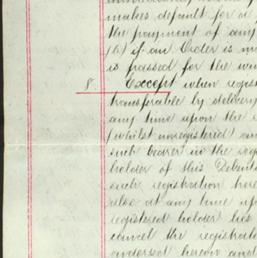 makes default for a
the payment of any
(b) if an Order is m
is passed for the wi
8. Except when regis
transferable by deliver
any time upon the
(whilst unregistered) an
such bearer in the regi
holder of this Debent
such registration here
also at any time upo
registered holder has
cancel the registrati
endorsed hereon and